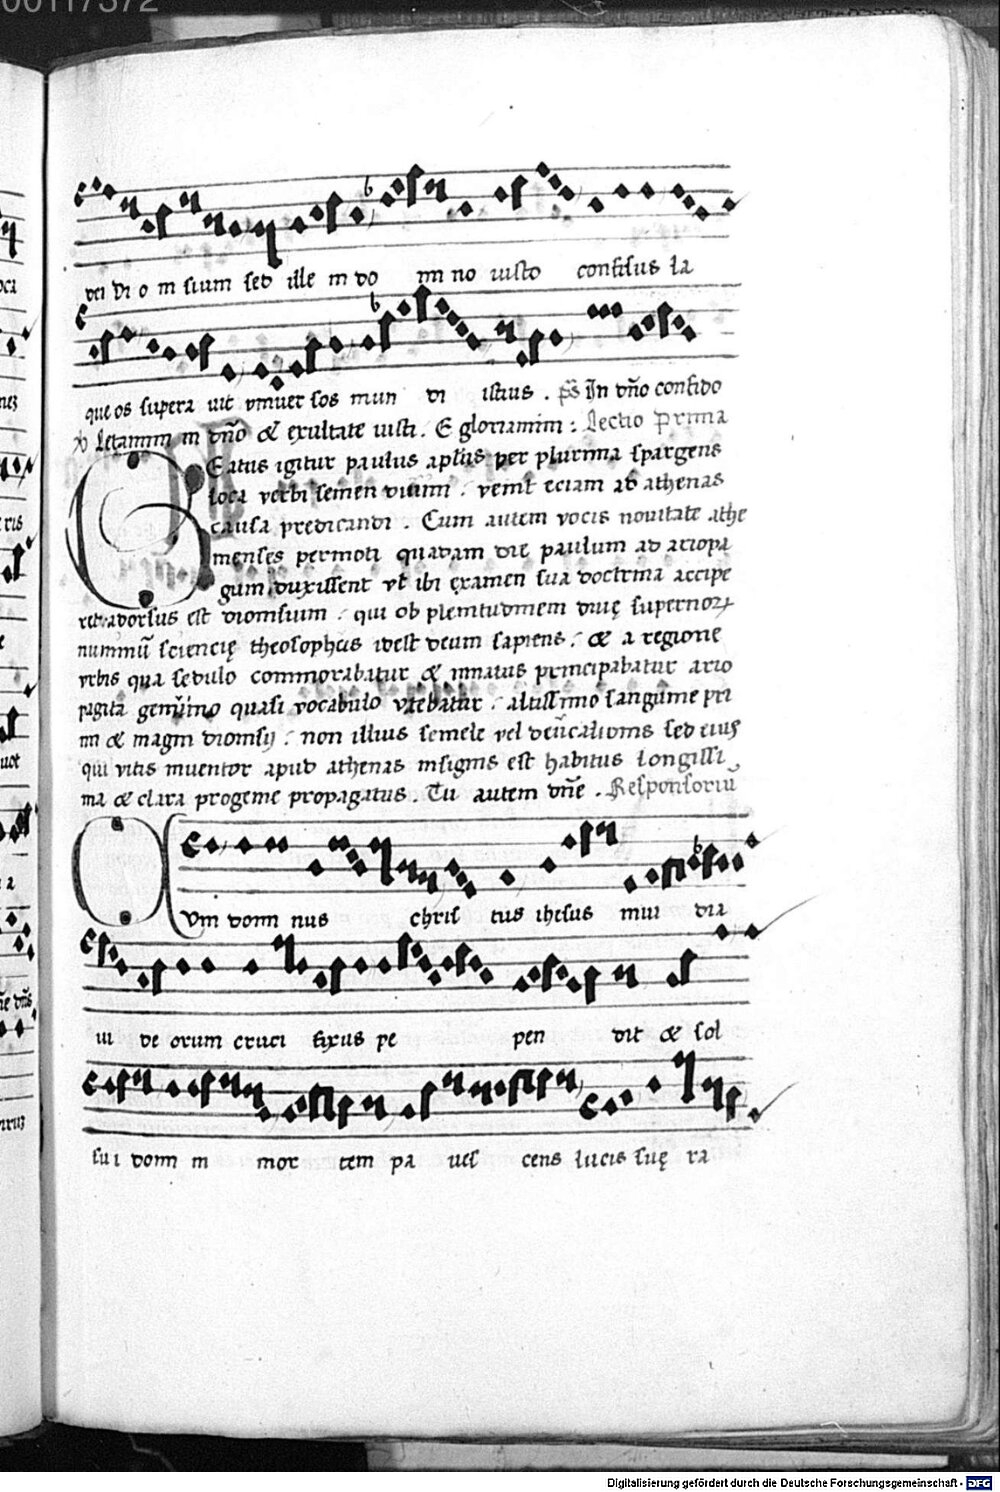 00117372
dei di o ni sium sed ille in do mi no iusto confisus la
que os supera uit vniuer sos mun di istius . ps In dño confido
Letamini in dño & exultate iusti . E gloriamini : Lectio Prima
Beatus igitur paulus apl̃us per plurima spargens
loca verbi semen diuini : venit eciam ad athenas
causa predicandi . Cum autem vocis nouitate athe
nienses permoti quadam die paulum ad ariopa
gum duxissent vt ibi examen sua doctrina accipe
ret : adorsus est dionisium : qui ob plenitudinem diuę supernoꝝ
nummũ sciencię theosophus idest deum sapiens : & a regione
vrbis qua sedulo commorabatur & innatus principabatur ario
pagita genuino quasi vocabulo vtebatur : altissimo sanguine pri
mi & magni dionisij : non illius semele vel deucalionis sed eius
qui vitis inuentor apud athenas insignis est habitus longissi
ma & clara progenie propagatus . Tu autem dñe . Responsoriũ
Cvm domi nus chris tus ihesus mui dia
ui de orum cruci fixus pe pen dit & sol
sui domi ni mor tem pa ues cens lucis suę ra
Digitalisierung gefördert durch die Deutsche Forschungsgemeinschaft - DFG